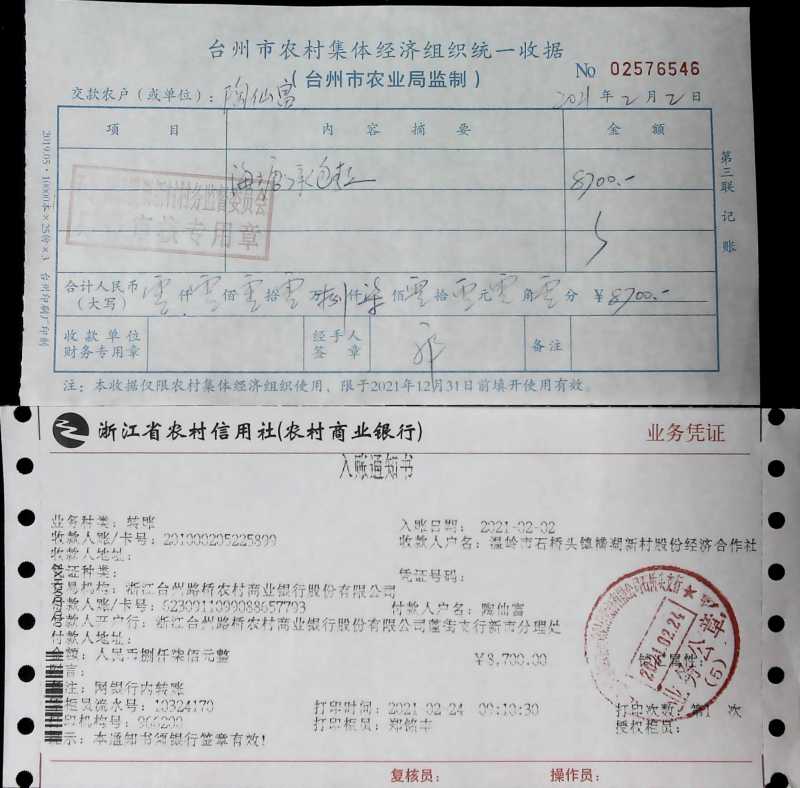 台州市农村集体经济组织统一收据
(台州市农业局监制)
No 02576546
交款农户(或单位): 陶仙富
2021年2月2日
项 目 内 容 摘 要 金 额
海塘承包款 8700.-
务监督委员会
审核专用章
合计人民币(大写) 零仟零佰零拾零万捌仟柒佰零拾零元零角零分 ¥8700.-
收款单位财务专用章 经手人签章 备注
注:本收据仅限农村集体经济组织使用、限于2021年12月31日前填开使用有效。
第三联 记账
2019.05·10000本×25份×3 台州印刷厂印制
浙江省农村信用社(农村商业银行) 业务凭证
入账通知书
业务种类: 转账 入账日期: 2021-02-02
收款人账/卡号: 201000205225899 收款人户名: 温岭市石桥头镇横湖新村股份经济合作社
收款人地址:
凭证种类: 凭证号码:
交易机构: 浙江台州路桥农村商业银行股份有限公司
付款人账/卡号: 6230911099088657703 付款人户名: 陶仙富
付款人开户行: 浙江台州路桥农村商业银行股份有限公司蓬街支行新市分理处
付款人地址:
金额: 人民币捌仟柒佰元整 ¥8,700.00
注: 网银行内转账
柜员流水号: 10324170 打印时间: 2021-02-24 09:10:30 打印次数: 第1 次
打印柜员: 授权柜员:
提示: 本通知书须银行签章有效!
2021.02.24
业务公章
(5)
复核员: 操作员: